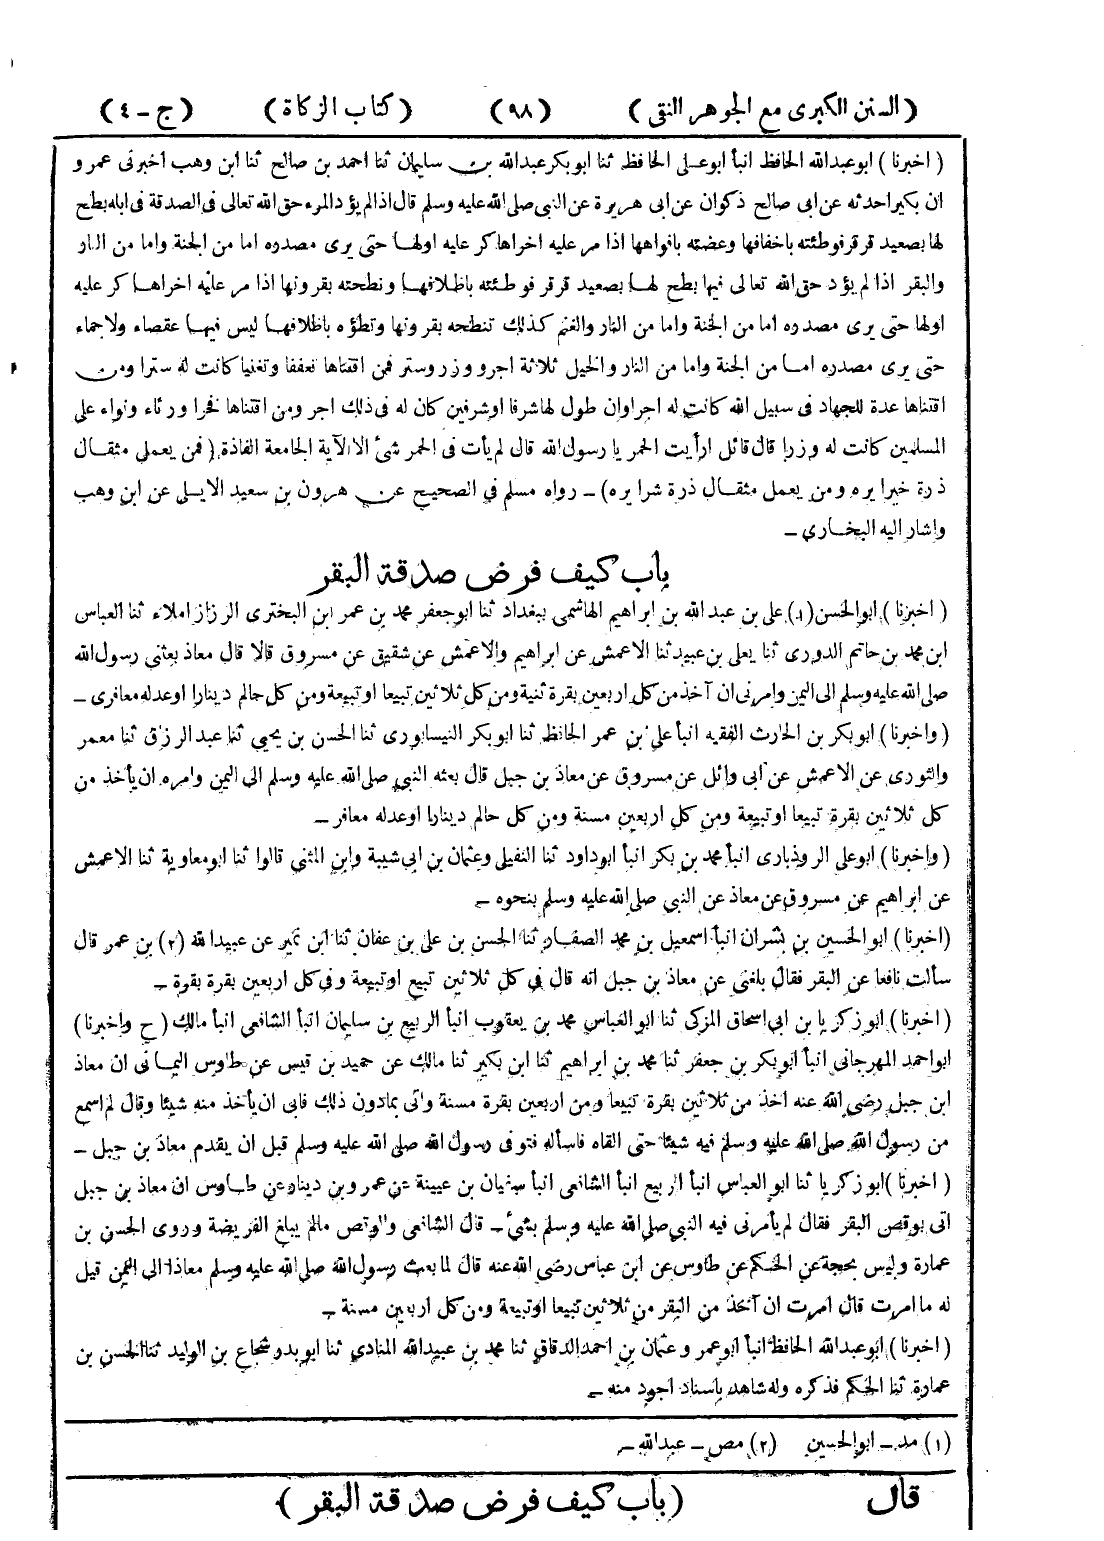 (السنن الكبرى مع الجوهر النقى) (٩٨) (كتاب الزكاة) (ج - ٤)
(اخبرنا) ابو عبد الله الحافظ انبأ ابو على الحافظ ثنا ابو بكر عبد الله بن سليمان ثنا احمد بن صالح ثنا ابن وهب اخبرنى عمرو
ان بكيرا حدثه عن ابى صالح ذكوان عن ابى هريرة عن النبى صلى الله عليه وسلم قال اذا لم يؤد المرء حق الله تعالى فى الصدقة فى ابله بطح
لها بصعيد قرقر فوطئته باخفافها وعضته بافواهها اذا مر عليه اخراها كر عليه اولها حتى يرى مصدره اما من الجنة واما من النار
والبقر اذا لم يؤد حق الله تعالى فيها بطح لها بصعيد قرقر فوطئته باظلافها ونطحته بقرونها اذا مر عليه اخراها كر عليه
اولها حتى يرى مصدره اما من الجنة واما من النار والغنم كذلك تنطحه بقرونها وتطؤه باظلافها ليس فيها عقصاء ولا جماء
حتى يرى مصدره اما من الجنة واما من النار والخيل ثلاثة اجر ووزر وستر فمن اقتناها تعففا وتغنيا كانت له سترا ومن
اقتناها عدة للجهاد فى سبيل الله كانت له اجرا وان طول لها شرفا او شرفين كان له فى ذلك اجر ومن اقتناها فخرا ورئاء ونواء على
المسلمين كانت له وزرا قال قائل ارأيت الحمر يا رسول الله قال لم يأت فى الحمر شئ الا الآية الجامعة الفاذة (فمن يعمل مثقال
ذرة خيرا يره ومن يعمل مثقال ذرة شرا يره) - رواه مسلم فى الصحيح عن هرون بن سعيد الايلى عن ابن وهب
واشار اليه البخارى -
باب كيف فرض صدقة البقر
(اخبرنا) ابو الحسن (١) على بن عبد الله بن ابراهيم الهاشمى ببغداد ثنا ابو جعفر محمد بن عمر ابن البخترى الرزاز املاء ثنا العباس
ابن محمد بن حاتم الدورى ثنا يعلى بن عبيد ثنا الاعمش عن ابراهيم والاعمش عن شقيق عن مسروق قالا قال معاذ بعثنى رسول الله
صلى الله عليه وسلم الى اليمن وامرنى ان آخذ من كل اربعين بقرة ثنية ومن كل ثلاثين تبيعا او تبيعة ومن كل حالم دينارا او عدله معافرى -
(واخبرنا) ابو بكر بن الحارث الفقيه انبأ على بن عمر الحافظ ثنا ابو بكر النيسابورى ثنا الحسن بن يحيى ثنا عبد الرزاق ثنا معمر
والثورى عن الاعمش عن ابى وائل عن مسروق عن معاذ بن جبل قال بعثه النبى صلى الله عليه وسلم الى اليمن وامره ان يأخذ من
كل ثلاثين بقرة تبيعا او تبيعة ومن كل اربعين مسنة ومن كل حالم دينارا او عدله معافر -
(واخبرنا) ابو على الروذبارى انبأ محمد بن بكر انبأ ابو داود ثنا النفيلى وعثمان بن ابى شيبة وابن المثنى قالوا ثنا ابو معاوية ثنا الاعمش
عن ابراهيم عن مسروق عن معاذ عن النبى صلى الله عليه وسلم بنحوه -
(اخبرنا) ابو الحسين بن بشران انبأ اسمعيل بن محمد الصفار ثنا الحسن بن على بن عفان ثنا ابن نمير عن عبيد الله (٢) بن عمر قال
سألت نافعا عن البقر فقال بلغنى عن معاذ بن جبل انه قال فى كل ثلاثين تبيع او تبيعة وفى كل اربعين بقرة بقرة -
(اخبرنا) ابو زكريا بن ابى اسحاق المزكى ثنا ابو العباس محمد بن يعقوب انبأ الربيع بن سليمان انبأ الشافعى انبأ مالك (ح واخبرنا)
ابو احمد المهرجانى انبأ ابو بكر بن جعفر ثنا محمد بن ابراهيم ثنا ابن بكير ثنا مالك عن حميد بن قيس عن طاوس اليمانى ان معاذ
ابن جبل رضى الله عنه اخذ من ثلاثين بقرة تبيعا ومن اربعين بقرة مسنة واتى بمادون ذلك فابى ان يأخذ منه شيئا وقال لم اسمع
من رسول الله صلى الله عليه وسلم فيه شيئا حتى القاه فاسأله فتوفى رسول الله صلى الله عليه وسلم قبل ان يقدم معاذ بن جبل -
(اخبرنا) ابو زكريا ثنا ابو العباس انبأ الربيع انبأ الشافعى انبأ سفيان بن عيينة عن عمرو بن دينار عن طاوس ان معاذ بن جبل
اتى بوقص البقر فقال لم يأمرنى فيه النبى صلى الله عليه وسلم بشئ - قال الشافعى والوقص مالم يبلغ الفريضة وروى الحسن بن
عمارة وليس بحجة عن الحكم عن طاوس عن ابن عباس رضى الله عنه قال لما بعث رسول الله صلى الله عليه وسلم معاذا الى اليمن قيل
له ما امرت قال امرت ان آخذ من البقر من ثلاثين تبيعا او تبيعة ومن كل اربعين مسنة -
(اخبرنا) ابو عبد الله الحافظ انبأ ابو عمرو عثمان بن احمد الدقاق ثنا محمد بن عبيد الله المنادى ثنا ابو بدر شجاع بن الوليد ثنا الحسن بن
عمارة ثنا الحكم فذكره وله شاهد باسناد اجود منه -
(١) مد - ابو الحسين (٢) مص - عبد الله -
قال (باب كيف فرض صدقة البقر)